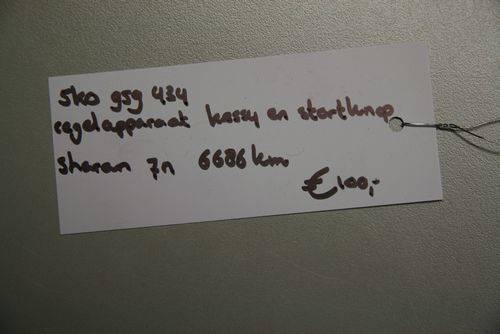 5k0 959 434
regelapparaat kessy en startknop
sharan 7n 6686 km
€100,-